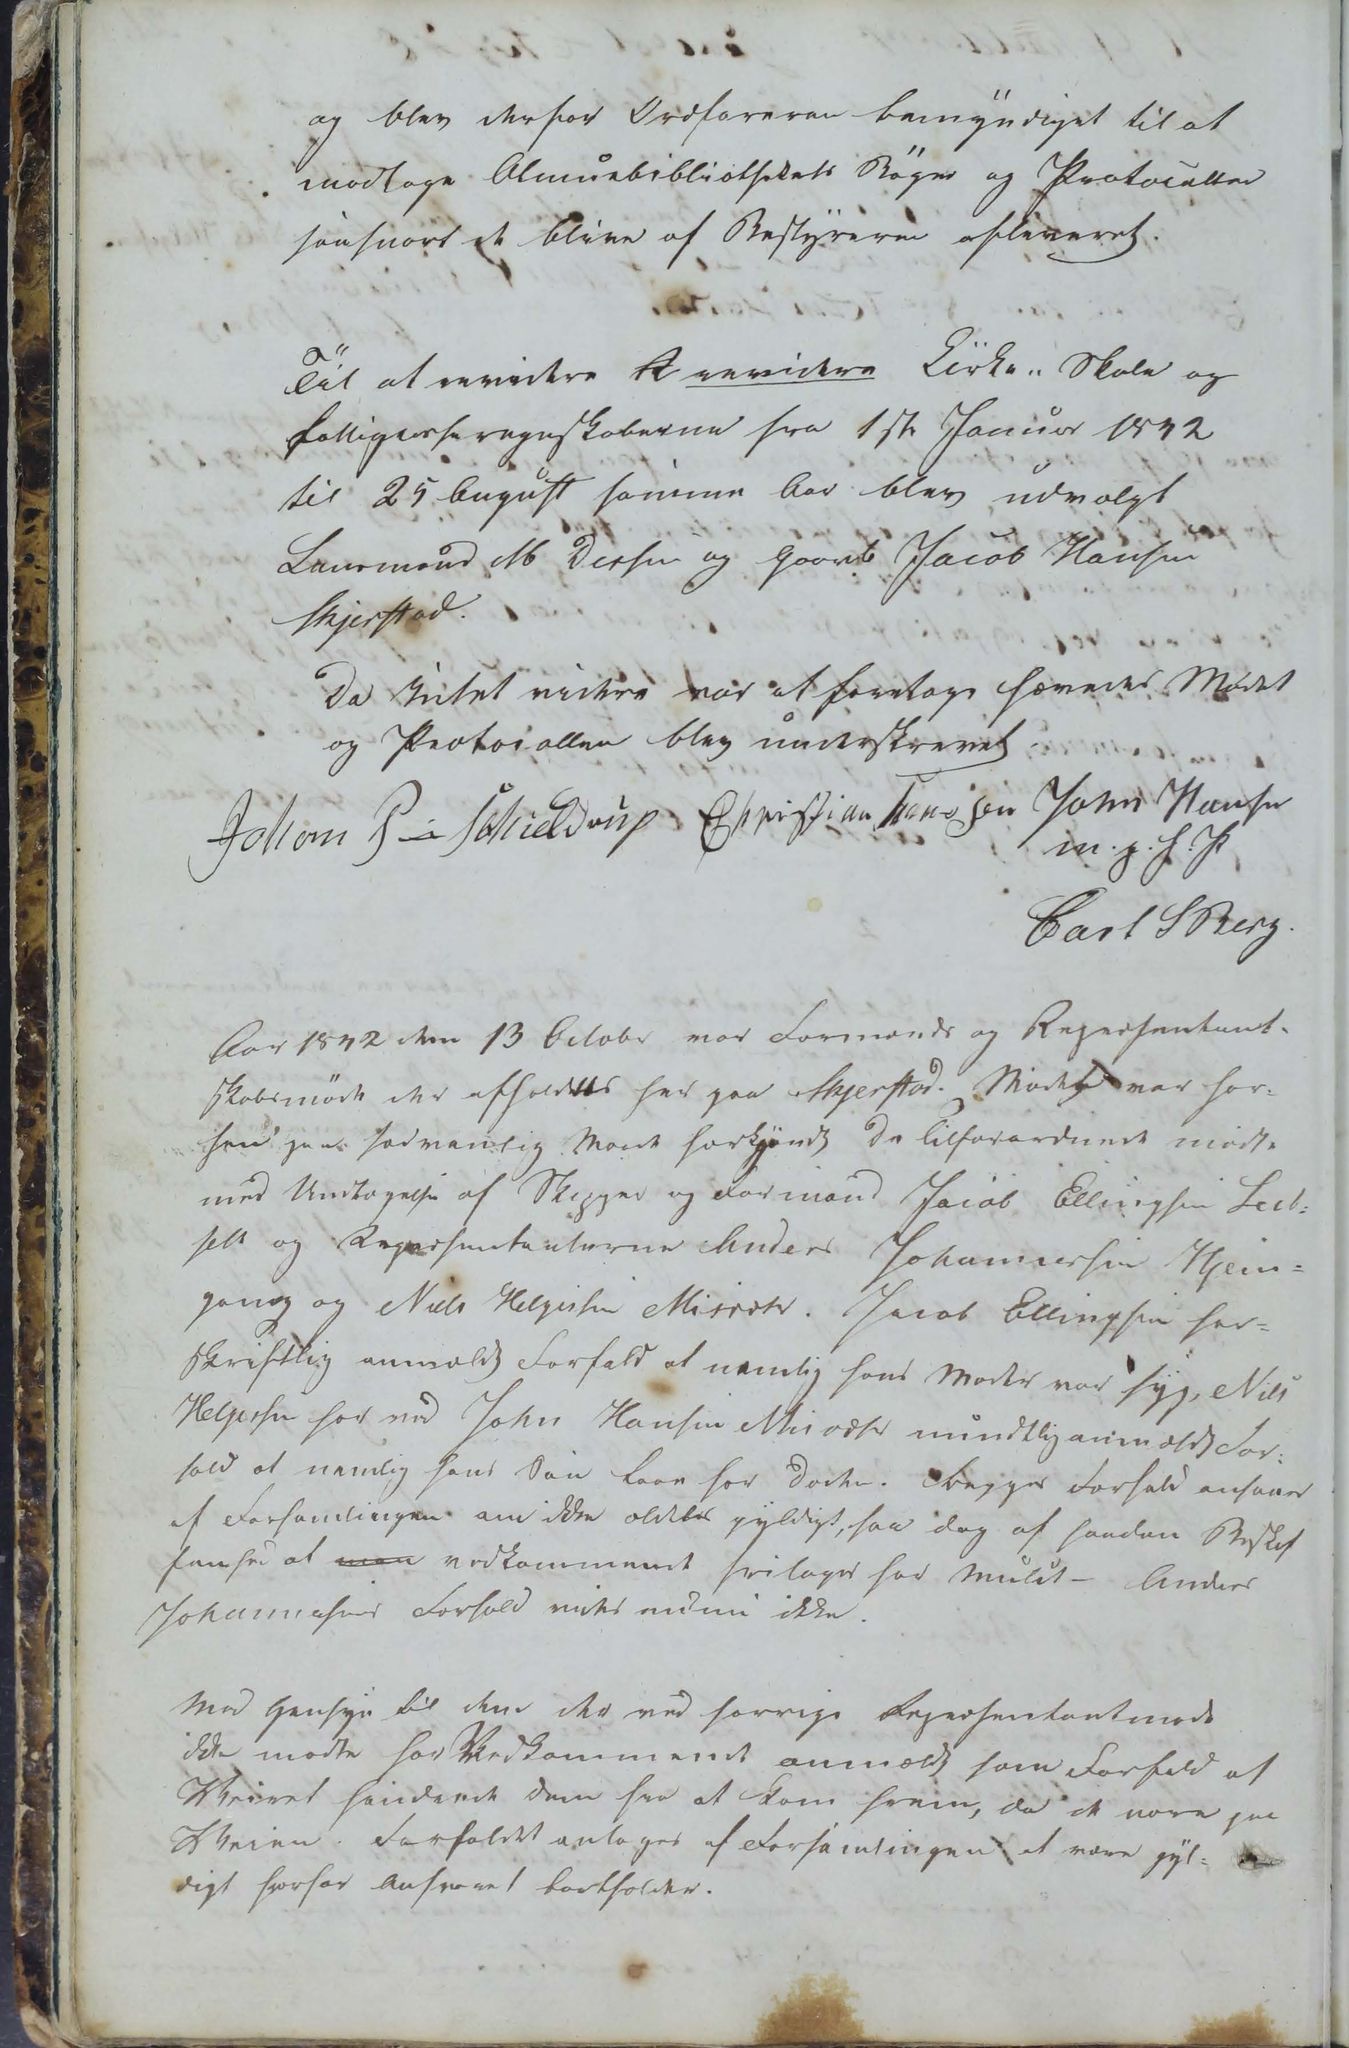 og blev derfor Ordføreren bemyndiget til at
modtage Almuebibliothekets Bøger og Protocoller
saasnart de blive af Bestyreren afleveret.
Til at revidere at revidere Kirke- Skole og
Fattigcasseregnskaberne fra 1ste Januar 1842
til 25 August samme Aar blev udvalgt
Lensmand M Dessen og Gaardb Jacob Hansen
Skjerstad.
Da Intet videre var at foretage hævedes Mødet
og Protocollen blev underskrevet
Johan P. Schieldrup Christian Hansen John Hansen
m. p. h. P
Carl S Berg.
Aar 1842 den 13 October var Formands og Repræsentant-
skabsmøde der afholdtes her paa Skjerstad. Mødet var for-
hen paa sædvanlig Maade forkyndt De tilforordnede mødte
med Undtagelse af Skipper og Formand Jacob Ellingsen
og Repræsentanterne Anders Johannessen Hjem-
gang og Niels Helgesen Misvær. Jacob Ellingsen har
skriftlig anmeldt Forfald at nemlig hans Moder var syg, Nils
Helgesen har ved John Hansen Misvær mundtlig anmeldt For-
fald at nemlig hans Søn laae for Døden. Begges Forfald ansaaes
af Forsamlingen om ikke aldeles gyldigt, saa dog af saadan Beskaf
fenhed at man vedkommende fritages for Mulct - Anders
Johannesens Forfald vides endnu ikke.
Med Hensyn til dem der ved forrige Repræsentantmøde
ikke mødte har Vedkommende anmeldt som Forfald at
Veiret hindrede dem fra at kom frem, da de vare paa
Veien. Forfaldet antages af Forsamlingen at være gyl-
digt hvorfor Ansvaret bortfalder.